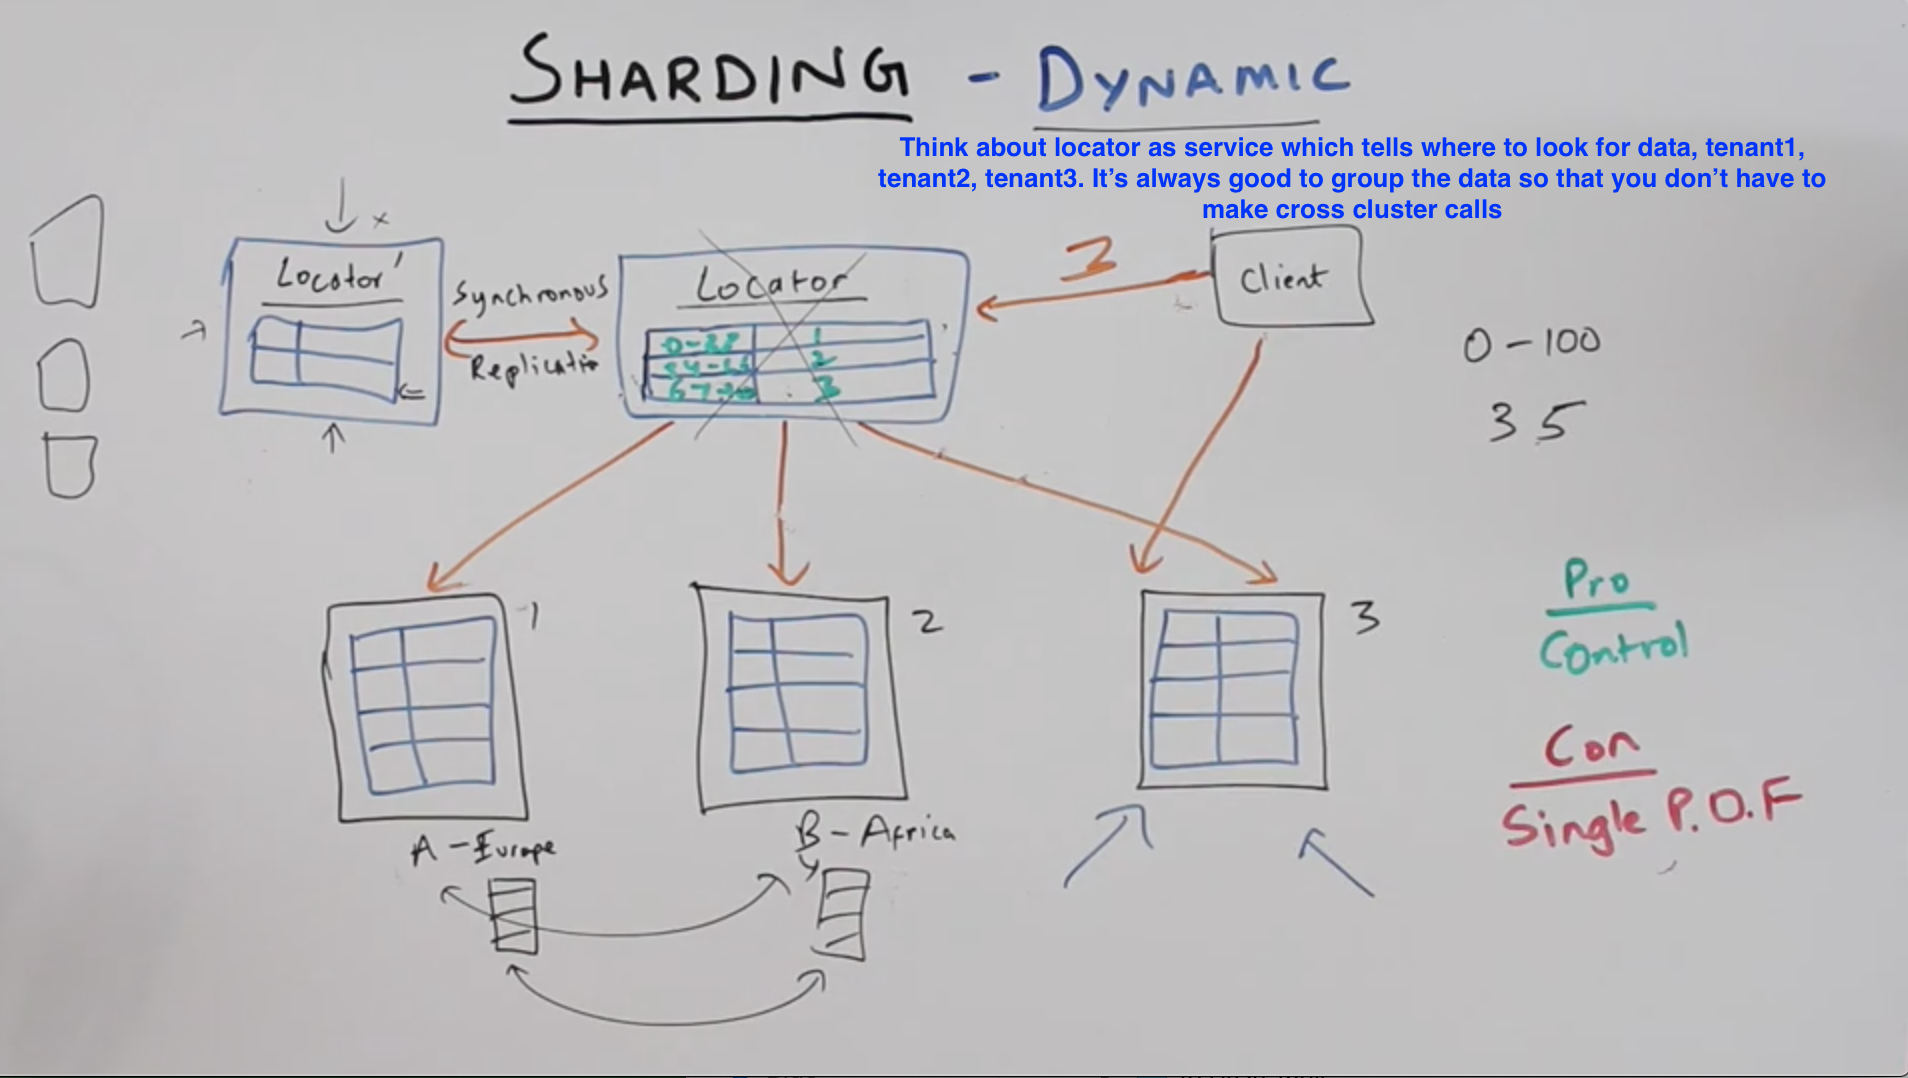 SHARDING - DYNAMIC
Think about locator as service which tells where to look for data, tenant1,
tenant2, tenant3. It's always good to group the data so that you don't have to
make cross cluster calls
Locator'
Synchronous
Replication
Locator
1
2
3
3
Client
0-100
35
1
2
3
A-Europe
B-Africa
Pro
Control
Con
Single P.O.F